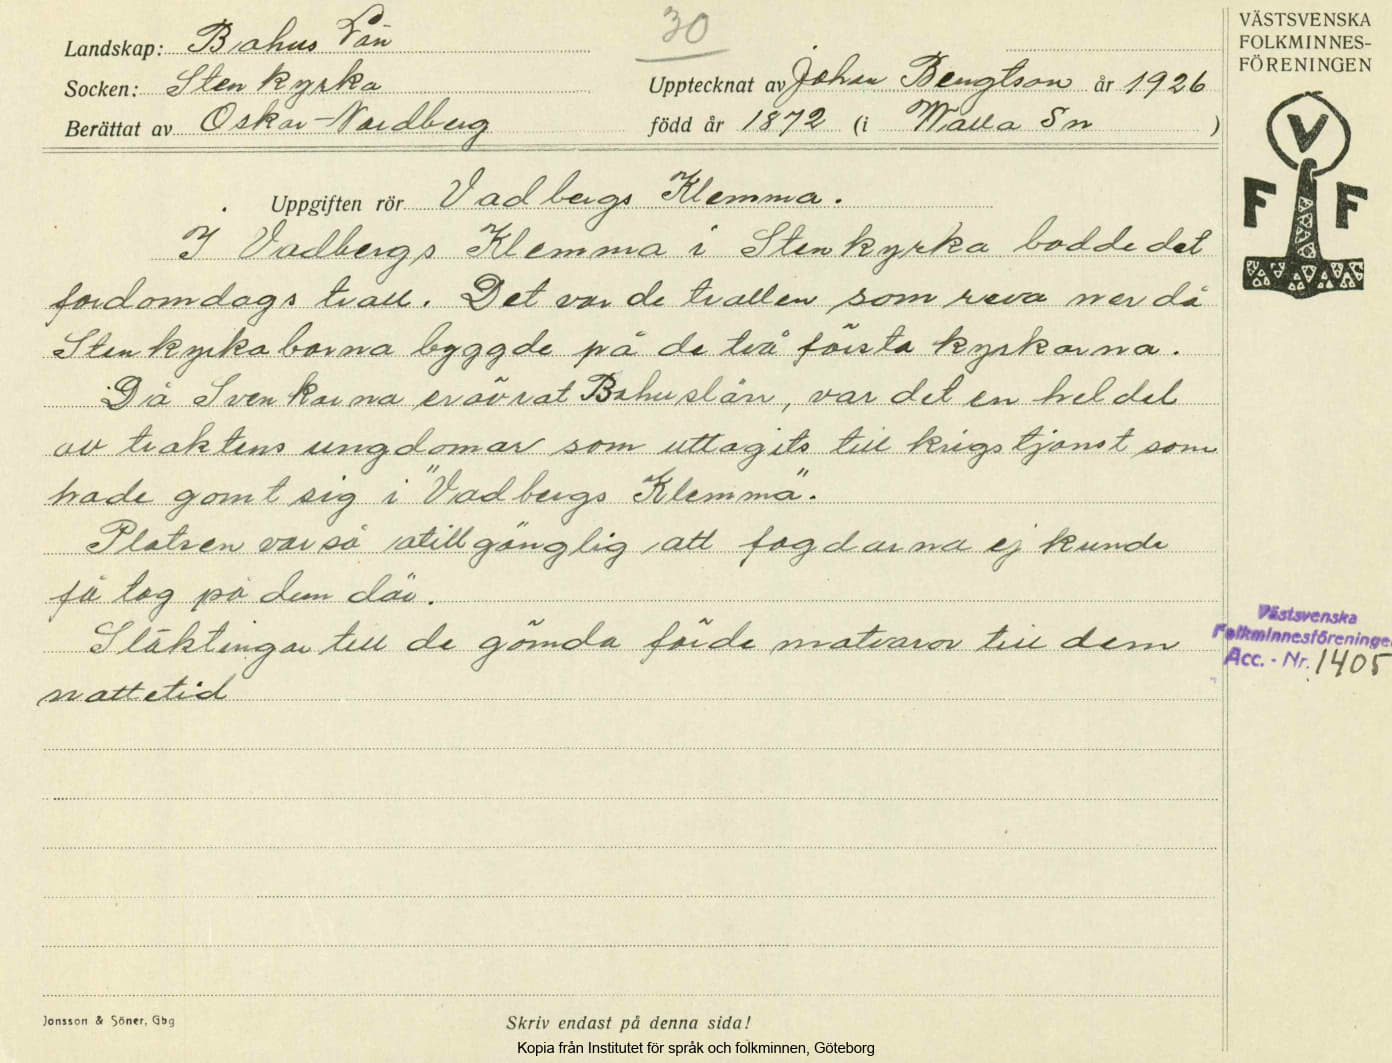 30
VÄSTSVENSKA
FOLKMINNES-
FÖRENINGEN
Landskap: Bohus Län
Socken: Stenkyrka
Upptecknat av Johan Bengtson år 1926
Berättat av Oskar Nordberg
född år 1872 (i Walla Sn )
V
F F
Uppgiften rör Vadbergs Klemma.
I Vadbergs Klemma i Stenkyrka bodde det
fordomdags trall. Det var de trallen som reva ner då
Stenkyrkaborna byggde på de två första kyrkorna.
Då Svenkarna erövrat Bohuslän, var det en hel del
av traktens ungdomar som uttagits till krigstjanst som
hade gomt sig i "Vadbergs Klemma".
Platsen var så otillgänglig att fogdarna ej kunde
få tag på dem där.
Släktingar till de gömda förde matvaror till dem
nattetid
Västsvenska
Folkminnesföreningen
Acc. - Nr. 1405
Jonsson & Söner, Gbg
Skriv endast på denna sida!
Kopia från Institutet för språk och folkminnen, Göteborg